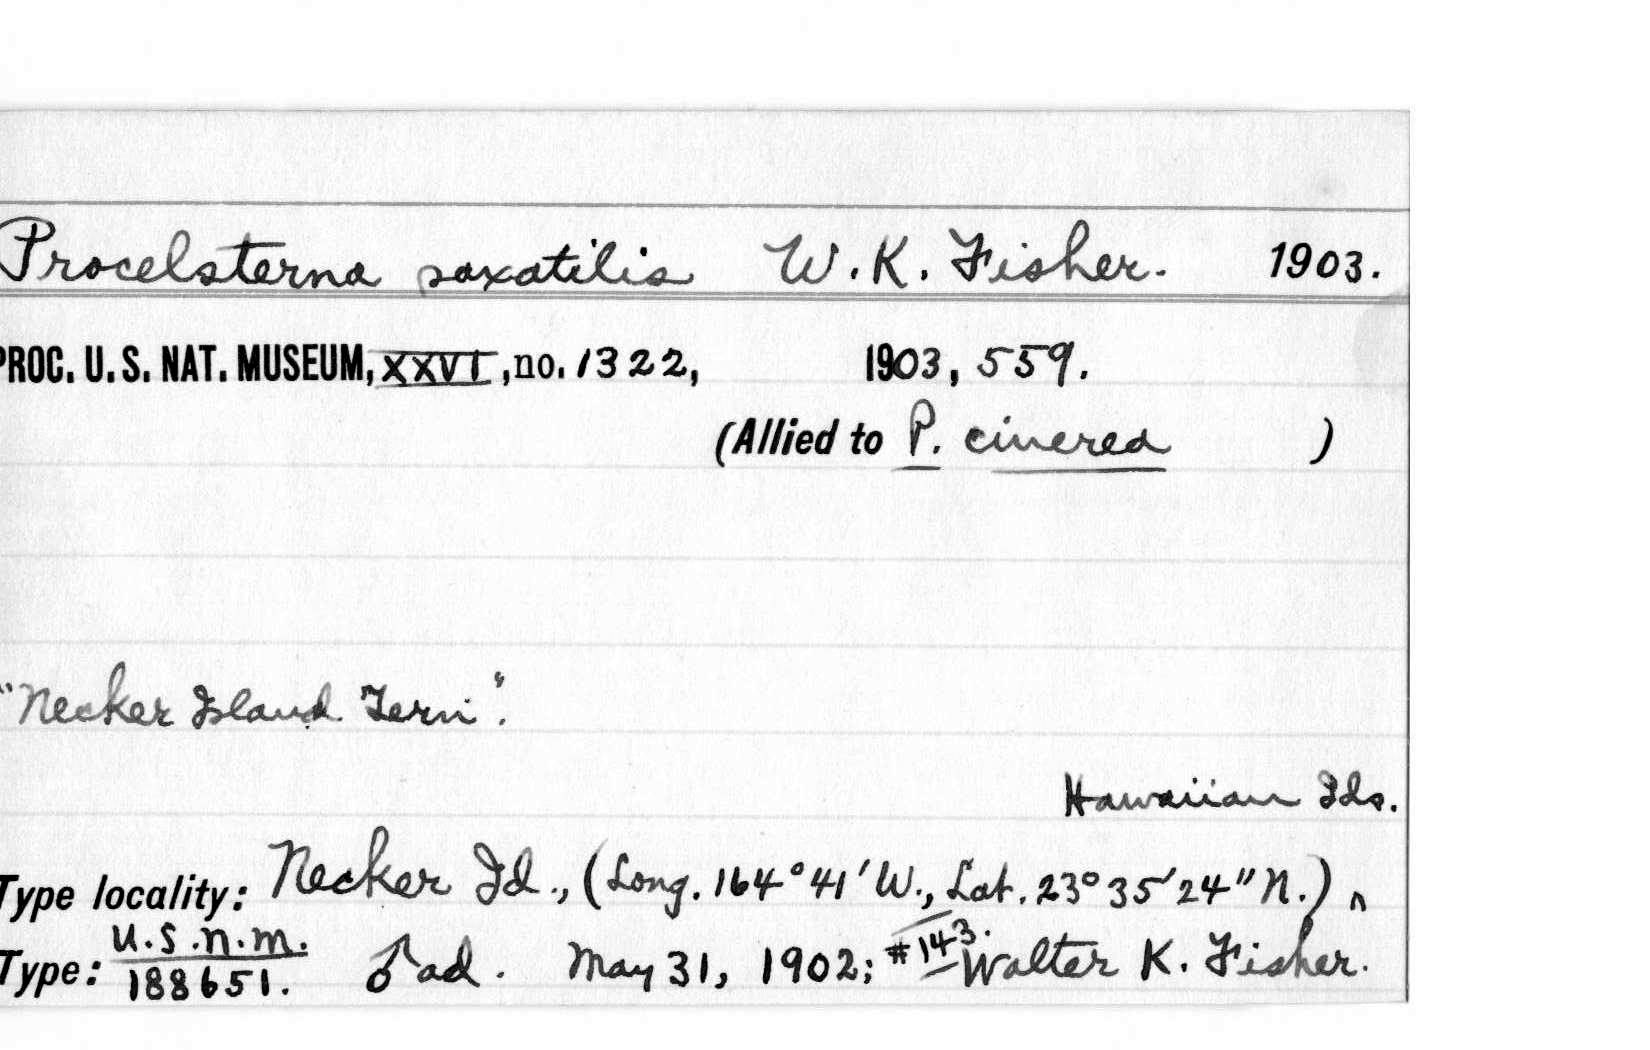 Procelsterna saxatilis W. K. Fisher. 1903.
PROC. U. S. NAT. MUSEUM, XXVI, no. 1322, 1903, 559.
(Allied to P. cinerea )
"Necker Island Tern".
Hawaiian Ids.
Type locality: Necker Id., (Long. 164°41′W., Lat. 23°35′24″N.)
Type: U.S.N.M. 188651. ♂ ad. May 31, 1902; #143. Walter K. Fisher.